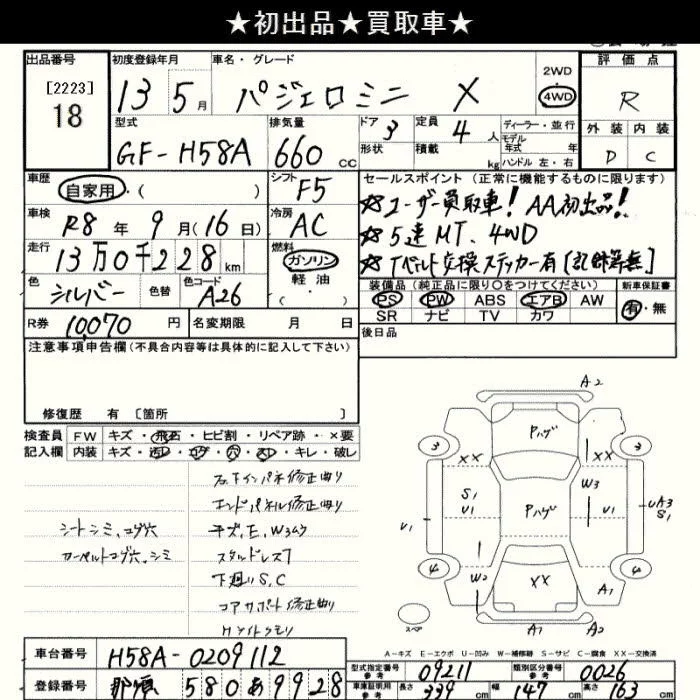 ★初出品★買取車★
出品番号 初度登録年月 車名・グレード 2WD 評価点
[2223] 18 13 5月 パジェロミニ X 4WD R
型式 排気量 ドア 定員 ディーラー・並行 外装 内装
GF-H58A 660cc 3 4人 モデル年式 年 D C
形状 積載 kg ハンドル 左・右
車歴 自家用・( ) シフト F5 セールスポイント(正常に機能するものに限ります)
☆ユーザー買取車!AA初出品!!
車検 R8年9月(16日) 冷房 AC ☆5速MT、4WD
走行 13万0千228km 燃料 ガソリン 軽油 ( ) ☆Tベルト交換ステッカー有[記録簿無]
色 シルバー 色替 色コード A26 装備品(純正品に限り○をつけてください) 新車保証書
PS PW ABS エアB AW 有・無
R券 10070円 名変期限 月 日 SR ナビ TV カワ
注意事項申告欄(不具合内容等は具体的に記入して下さい) 後日品
修復歴 有[箇所 ]
検査員 FW キズ・飛石・ヒビ割・リペア跡・×要
記入欄 内装 キズ・汚レ・コゲ・穴・スレ・キレ・破レ
エンドパネル修正曲り
シートシミ、コゲ穴 キズ、E、W3ムラ
カーペットコゲ穴、シミ スタッドレス7
下廻りS、C
コアサポート修正曲り
ヘッドライトクモリ
A2
Pハゲ
3 3
XX XX
W3
S1 U1 Pハゲ U1 UA3 S1
U1
4 W2 XX 4 A1
スペア A1 A2
A-キズ E-エクボ U-凹み W-補修跡 S-サビ C-腐食 XX-交換済
車台番号 H58A-0209112 型式指定番号 参考 09211 類別区分番号 参考 0026
登録番号 那須 580 あ 9928 車庫証明用 参考 長さ 339cm 幅 147cm 高さ 163cm